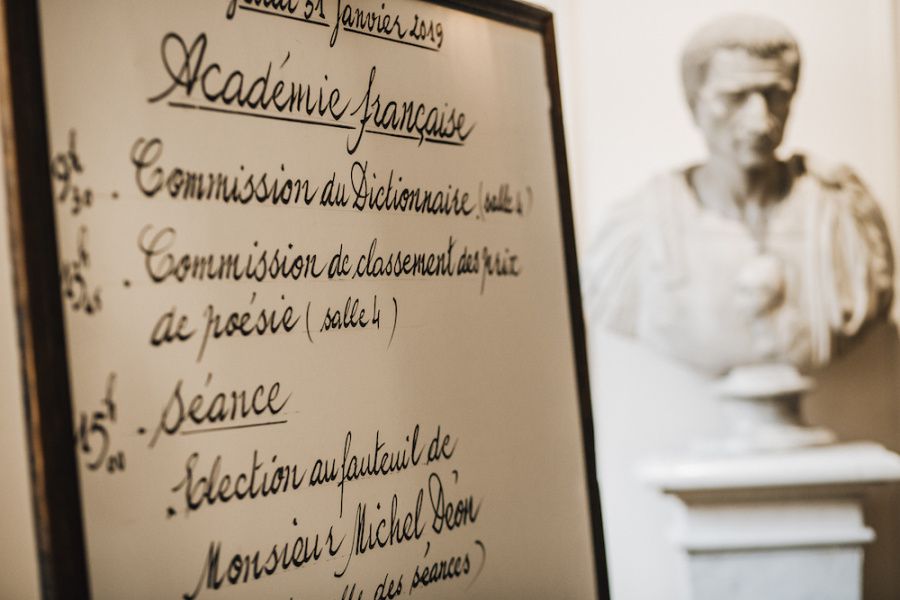 Jeudi 31 Janvier 2019
Académie française
9h30 . Commission du Dictionnaire (salle 4)
. Commission de classement des prix
de poésie (salle 4)
15h - Séance
. Election au fauteuil de
Monsieur Michel Déon
salle des séances)